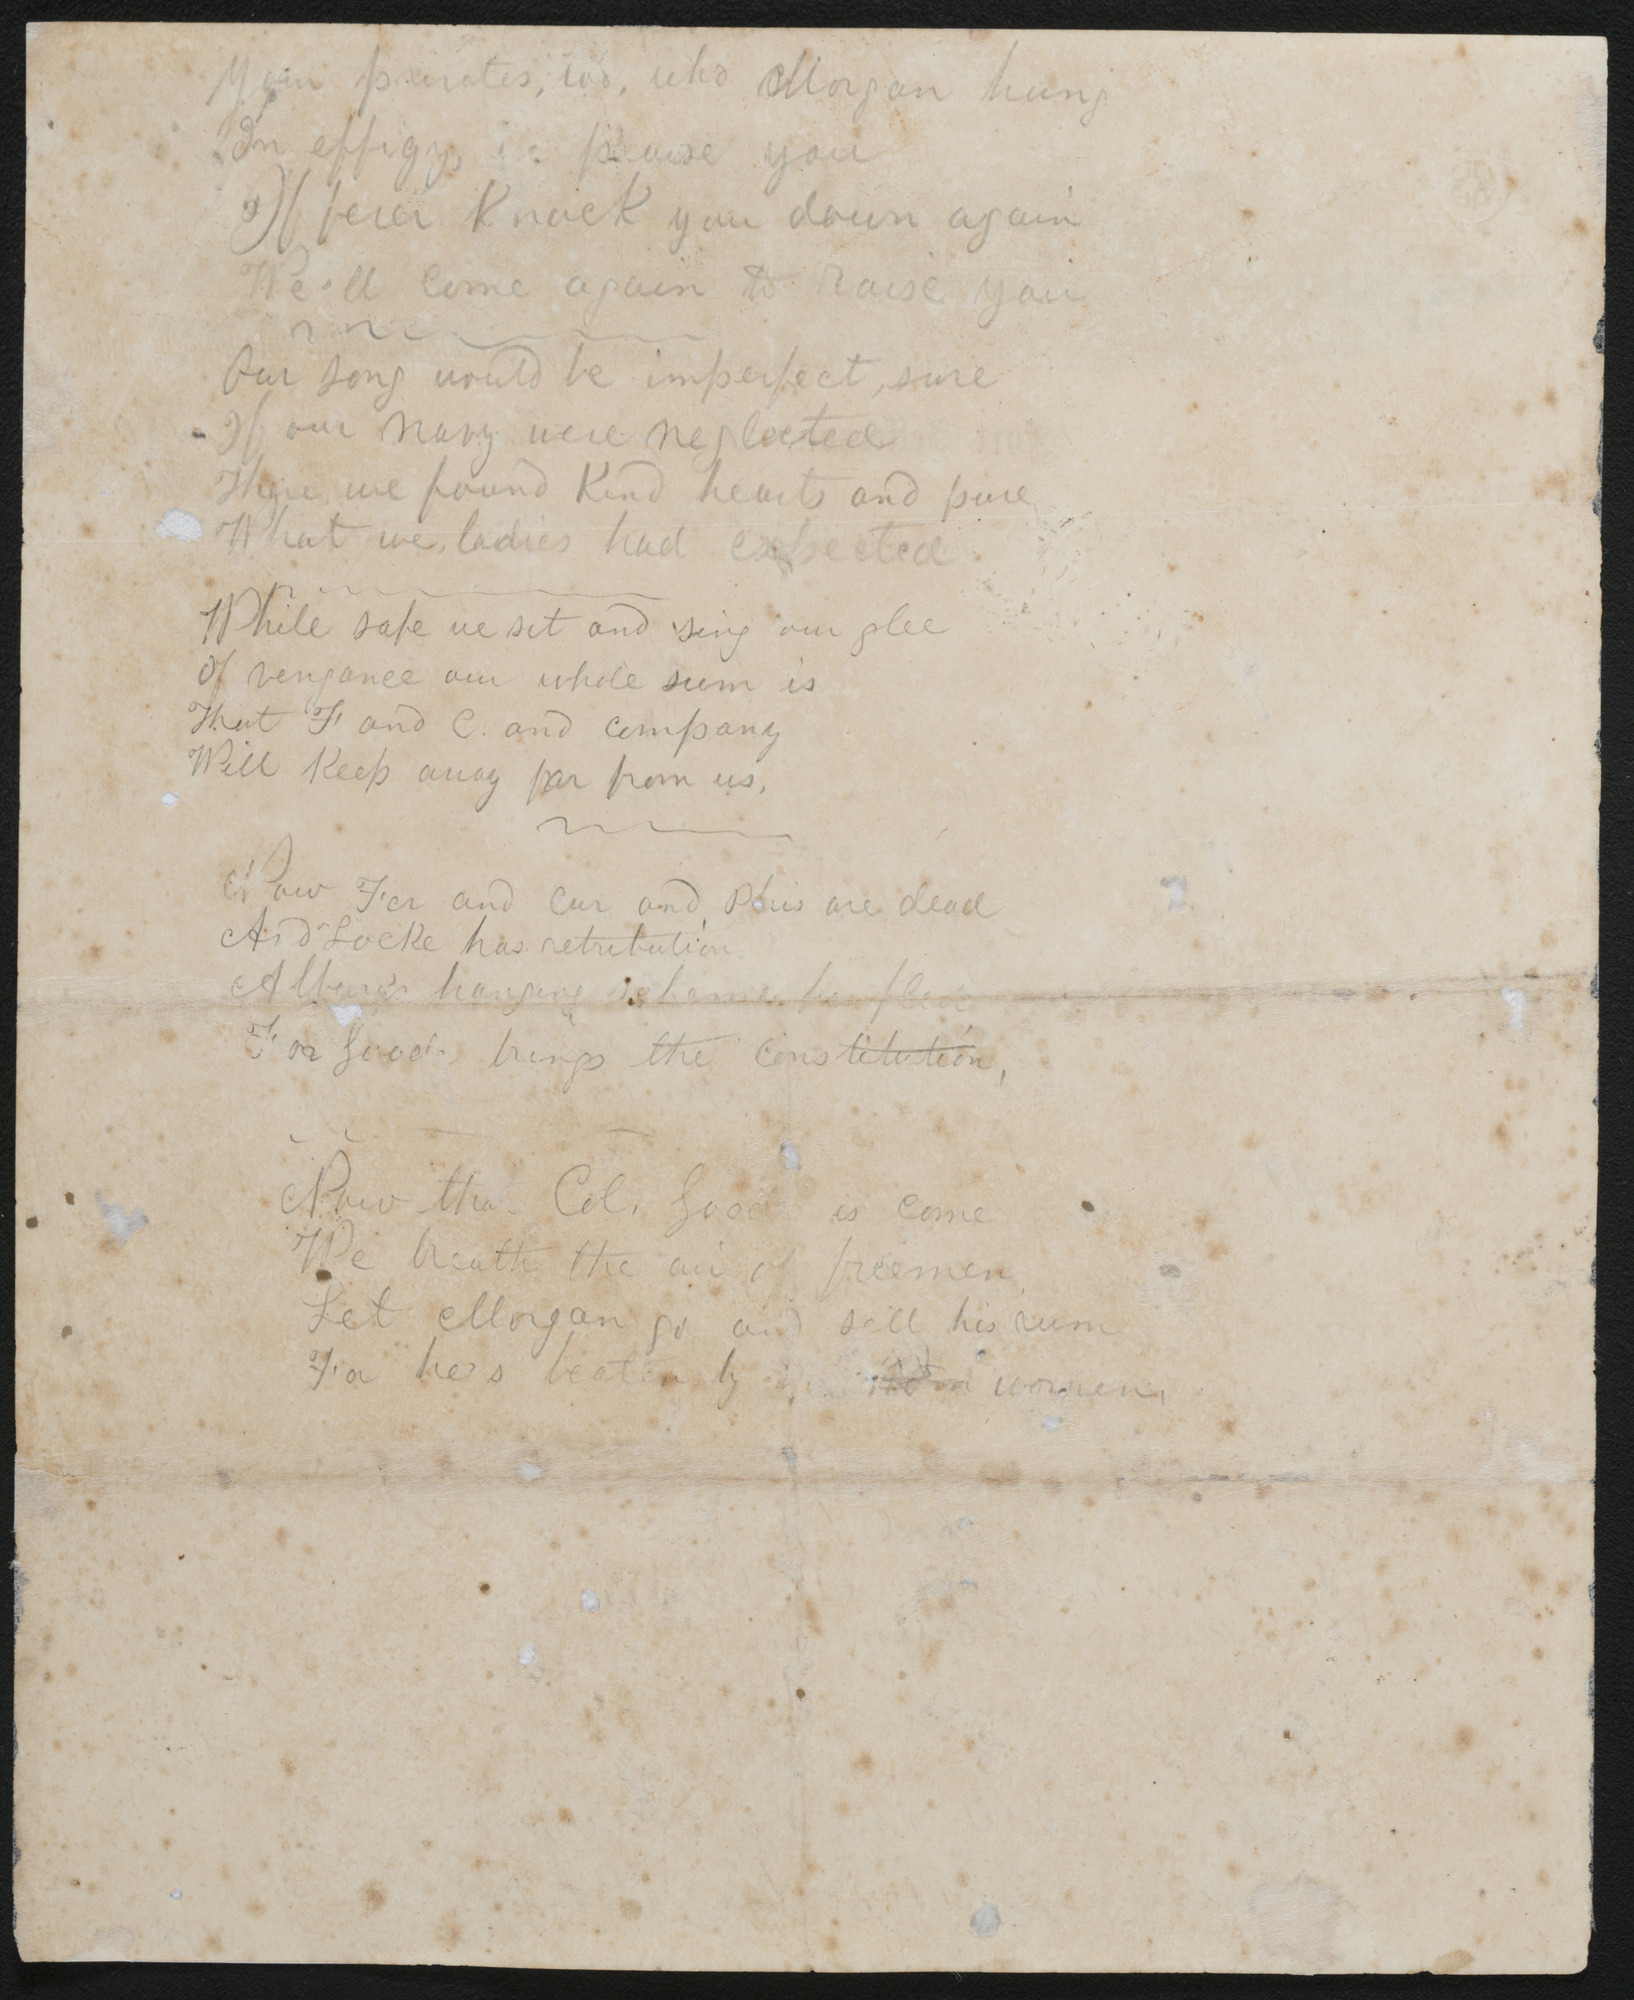 Your privates, too, who Morgan hung
In effigy, praise you
If fever Knock you down again
We'll come again to raise you
Our song would be imperfect, sure
If our Navy were neglected
There we found Kind hearts and pure
What we, ladies had expected
While safe we sit and sing our glee
Of vengance our whole sum is
That F and C. and company
Will Keep away far from us,
Now Fer and Cur and Phis are dead
And Locke has retribution
hanging
For Good brings the constitution,
Now that Col. Good is come
We breath the air of freemen
Let Morgan go and sell his rum
For he's beaten by women,